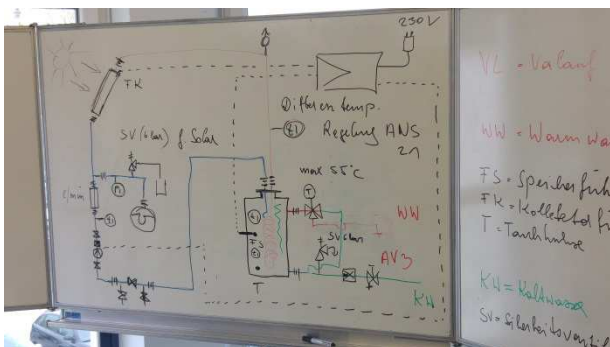 230V
FK
Differen temp.
Regelung ANS
21
SV f Solar
max 55°C
l/min
T
WW
SV
AV3
KW
T
VL = Vorlauf
WW = Warm wa
FS = Speicherfüh
FK = Kollektorf
T = Tauchhülse
KW = Kaltwasser
SV = Sicherheitsventil